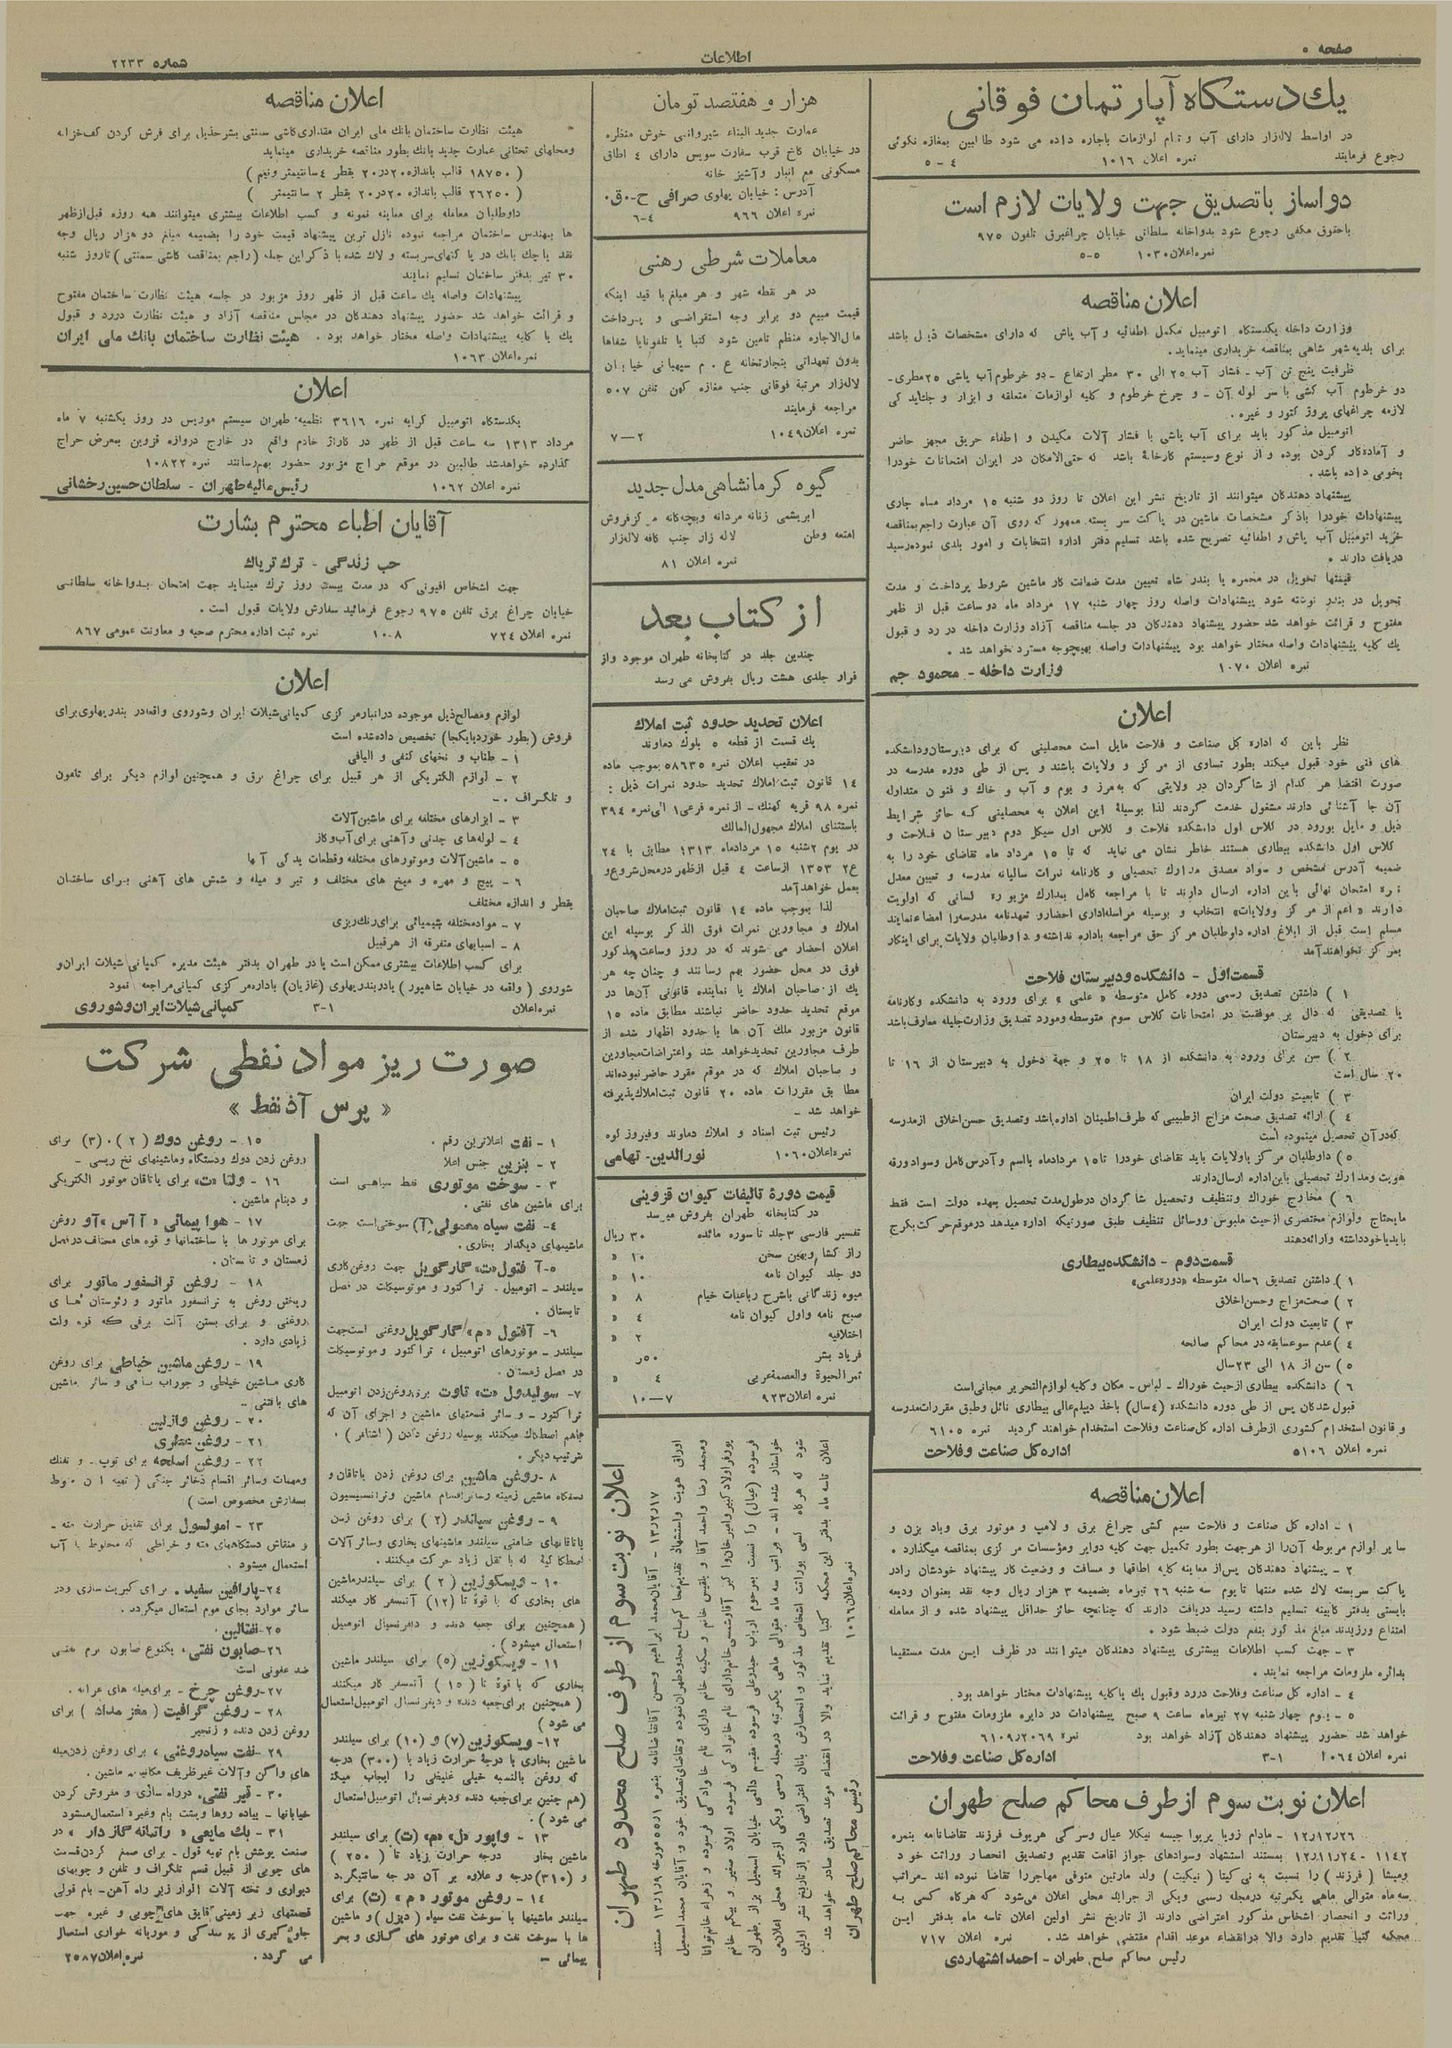 صفحه ۵
اطلاعات
شماره ۲۲۳۳
یك دستگاه آپارتمان فوقانی
در اواسط لاله‌زار دارای آب و تمام لوازمات باجاره داده می شود طالبین بمغازه نکوئی
رجوع فرمایند نمره اعلان ۱۰۱۶ ۴-۵
دواساز باتصدیق جهت ولایات لازم است
باحقوق مکفی رجوع شود بدواخانه سلطانی خیابان چراغبرق تلفون ۹۷۵
نمره اعلان ۱۰۳۰ ۵-۵
اعلان مناقصه
وزارت داخله یکدستگاه اتومبیل مکمل اطفائیه و آب پاش که دارای مشخصات ذیل باشد
برای بلدیه شهر شاهی بمناقصه خریداری مینماید.
ظرفیت پنج تن آب - فشار آب ۲۵ الی ۳۰ مطر ارتفاع - دو خرطوم آب پاشی ۲۵ مطری-
دو خرطوم آب کشی با سر لوله آن - و چرخ خرطوم و کلیه لوازمات متعلقه و ابزار و جك یدکی
لازمه چراغهای پروژکتور و غیره.
اتومبیل مذکور باید برای آب پاشی با فشار آلات مکیدن و اطفاء حریق مجهز حاضر
و آماده کار کردن بوده و از نوع وسیستم کارخانهٔ باشد که حتی‌الامکان در ایران امتحانات خودرا
بخوبی داده باشد.
پیشنهاد دهندگان میتوانند از تاریخ نشر این اعلان تا روز دو شنبه ۱۵ مرداد ماه جاری
پیشنهادات خودرا باذکر مشخصات ماشین در پاکت سر بسته ممهور که روی آن عبارت راجع بمناقصه
خرید اتومبیل آب پاش و اطفائیه تصریح شده باشد تسلیم دفتر اداره انتخابات و امور بلدی نموده رسید
دریافت دارند.
قیمتها تحویل در محمره یا بندر شاه تعیین مدت ضمانت کار ماشین شروط پرداخت و مدت
تحویل در بندر نوشته شود پیشنهادات واصله روز چهار شنبه ۱۷ مرداد ماه دو ساعت قبل از ظهر
مفتوح و قرائت خواهد شد حضور پیشنهاد دهندگان در جلسه مناقصه آزاد وزارت داخله در رد و قبول
یك کلیه پیشنهادات واصله مختار خواهد بود پیشنهادات واصله بهیچوجه مسترد خواهد شد.
نمره اعلان ۱۰۷۰ وزارت داخله - محمود جم
اعلان
نظر باین که اداره کل صناعت و فلاحت مایل است محصلینی که برای دبیرستان و دانشکده
های فنی خود قبول میکند بطور تساوی از مرکز و ولایات باشند و پس از طی دوره مدرسه در
صورت اقتضا هر کدام از شاگردان در ولایتی که به مرز و بوم و آب و خاك و فنون متداوله
آن جا آشنائی دارند مشغول خدمت گردند لذا بوسیلهٔ این اعلان به محصلینی که حائز شرایط
ذیل و مایل بورود در کلاس اول دانشکده فلاحت و کلاس اول سیکل دوم دبیرستان فلاحت و
کلاس اول دانشکده بیطاری هستند خاطر نشان می نماید که تا ۱۵ مرداد ماه تقاضای خود را به
ضمیمه آدرس مشخص و سواد مصدق مدارك تحصیلی و کارنامه نمرات سالیانه مدرسه و تعیین معدل
نمره امتحان نهائی باین اداره ارسال دارند تا با مراجعه کامل بمدارك مزبوره کسانی که اولویت
دارند «اعم از مرکز وولایات» انتخاب و بوسیله مراسله اداری احضار و تعهدنامه مدرسه را امضاء نمایند
مسلم است قبل از ابلاغ اداره داوطلبان مرکز حق مراجعه باداره نداشته و داوطلبان ولایات برای اینکار
بمرکز نخواهند آمد
قسمت اول - دانشکده و دبیرستان فلاحت
۱) داشتن تصدیق رسمی دوره کامل متوسطه «علمی» برای ورود به دانشکده و کارنامه
یا تصدیقی که دال بر موفقیت در امتحانات کلاس سوم متوسطه و مورد تصدیق وزارت جلیله معارف باشد
برای دخول به دبیرستان
۲) سن برای ورود به دانشکده از ۱۸ تا ۲۵ و جهة دخول به دبیرستان از ۱۶ تا
۲۰ سال است
۳) تابعیت دولت ایران
۴) ارائه تصدیق صحت مزاج از طبیبی که طرف اطمینان اداره باشد و تصدیق حسن اخلاق از مدرسه
که در آن تحصیل مینموده است
۵) داوطلبان مرکز یا ولایات باید تقاضای خودرا تا ۱۵ مرداد ماه بااسم و آدرس کامل و سواد ورقه
هویت و مدارك تحصیلی باین اداره ارسال دارند
۶) مخارج خوراك و تنظیف و تحصیل شاگردان در طول مدت تحصیل بعهده دولت است فقط
مایحتاج و لوازم مختصری از حیث ملبوس و وسائل تنظیف طبق صورتیکه اداره میدهد در موقع حرکت بکرج
باید با خود داشته و ارائه دهند
قسمت دوم - دانشکده بیطاری
۱) داشتن تصدیق ۶ ساله متوسطه «دوره علمی»
۲) صحت مزاج و حسن اخلاق
۳) تابعیت دولت ایران
۴) عدم سوء سابقه در محاکم صالحه
۵) سن از ۱۸ الی ۲۳ سال
۶) دانشکده بیطاری از حیث خوراك - لباس - مکان و کلیه لوازم التحریر مجانی است
قبول شدگان پس از طی دوره دانشکده (۴ سال) باخذ دیپلم عالی بیطاری نائل و طبق مقررات مدرسه
و قانون استخدام کشوری از طرف اداره کل صناعت و فلاحت استخدام خواهند گردید نمره ۶۱۰۵
نمره اعلان ۵۱۰۶ اداره کل صناعت و فلاحت
اعلان مناقصه
۱ - اداره کل صناعت و فلاحت سیم کشی چراغ برق و لامپ و موتور برق و باد بزن و
سایر لوازم مربوطه آن را از هر جهت بطور تکمیل جهت کلیه دوایر و مؤسسات مرکزی بمناقصه میگذارد.
۲ - پیشنهاد دهندگان پس از معاینه کلیه اطاقها و مسافت و وضعیت کار پیشنهاد خودشان را در
پاکت سربسته لاك شده منتها تا یوم سه شنبه ۲۶ تیرماه بضمیمه ۳ هزار ریال وجه نقد بعنوان ودیعه
بایستی بدفتر کابینه تسلیم داشته رسید دریافت دارند که چنانچه حائز حداقل پیشنهاد شده و از معامله
امتناع ورزیدند مبلغ مذکور بنفع دولت ضبط شود.
۳ - جهت کسب اطلاعات بیشتری پیشنهاد دهندگان میتوانند در ظرف این مدت مستقیما
بدائره ملزومات مراجعه نمایند.
۴ - اداره کل صناعت و فلاحت در رد و قبول یك یا کلیه پیشنهادات مختار خواهد بود.
۵ - یوم چهار شنبه ۲۷ تیرماه ساعت ۹ صبح پیشنهادات در دایره ملزومات مفتوح و قرائت
خواهد شد حضور پیشنهاد دهندگان آزاد خواهد بود نمره ۶۱۰۹/۲۰۶۹
نمره اعلان ۱۰۶۴ ۱-۳ اداره کل صناعت و فلاحت
اعلان نوبت سوم از طرف محاکم صلح طهران
۱۲/۱۲/۲۶ - مادام زویا پریوا جبسه نیکلا عیال و سرکی هریوف فرزند تقاضانامه بنمره
۱۱۴۲-۱۲/۱۱/۲۴ بمستند استشهاد و سوادهای جواز اقامت تقدیم و تصدیق انحصار وراثت خود
ومیشا (فرزند) را نسبت به نی کیتا (نیکیت) ولد مارتین متوفی مهاجررا تقاضا نموده اند - مراتب
سه ماه متوالی ماهی یکمرتبه در مجله رسمی و یکی از جرائد محلی اعلان می‌شود که هرکاه کسی به
وراثت و انحصار اشخاص مذکور اعتراضی دارند از تاریخ نشر اولین اعلان تا سه ماه بدفتر این
محکمه کتبا تقدیم دارد والا در انقضاء موعد اقدام مقتضی خواهد شد. نمره اعلان ۷۱۷
رئیس محاکم صلح طهران - احمد اشتهاردی
هزار و هفتصد تومان
عمارت جدید البناء شیروانی خوش منظره
در خیابان کاخ قرب سفارت سویس دارای ۴ اطاق
مسکونی مع انبار و آشپز خانه
آدرس: خیابان پهلوی صرافی ح.ق.
نمره اعلان ۹۶۶ ۴-۶
معاملات شرطی رهنی
در هر نقطه شهر و هر مبلغ با قید اینکه
قیمت مبیع دو برابر وجه استقراضی و پرداخت
مال‌الاجاره منظم تامین شود کتبا یا تلفونا یا شفاها
بدون تعهداتی بتجارتخانه ع . م سیهبانی خیابان
لاله‌زار مرتبهٔ فوقانی جنب مغازه کهن تلفن ۵۰۷
مراجعه فرمایند
نمره اعلان ۱۰۴۹ ۲-۷
گیوه کرمانشاهی مدل جدید
ابریشمی زنانه مردانه و بچه‌گانه مرکز فروش
امتعه وطن لاله زار جنب کافه لاله‌زار
نمره اعلان ۸۱
از کتاب بعد
چندین جلد در کتابخانه طهران موجود و از
قرار جلدی هشت ریال بفروش می رسد
اعلان تحدید حدود ثبت املاك
یك قسمت از قطعه ۵ بلوك دماوند
در تعقیب اعلان نمره ۵۸۶۳۵ بموجب ماده
۱۴ قانون ثبت املاك تحدید حدود نمرات ذیل:
نمره ۹۸ قریه کهنك - از نمره فرعی ۱ الی نمره ۳۹۴
باستثنای املاك مجهول‌المالك
در یوم ۲شنبه ۱۵ مرداد ماه ۱۳۱۳ مطابق با ۲۴
ع۲ ۱۳۵۳ از ساعت ۴ قبل از ظهر در محل شروع و
بعمل خواهد آمد
لذا بموجب ماده ۱۴ قانون ثبت املاك صاحبان
املاك و مجاورین نمرات فوق الذکر بوسیله این
اعلان احضار می شوند که در روز و ساعت مذکور
فوق در محل حضور بهم رسانند و چنان چه هر
یك از صاحبان املاك یا نماینده قانونی آن‌ها در
موقع تحدید حدود حاضر نباشند مطابق ماده ۱۵
قانون مزبور ملك آن ها با حدود اظهار شده از
طرف مجاورین تحدید خواهد شد و اعتراضات مجاورین
و صاحبان املاك که در موقع مقرر حاضر نبوده‌اند
مطابق مقررات ماده ۲۰ قانون ثبت املاك پذیرفته
خواهد شد -
رئیس ثبت اسناد و املاك دماوند و فیروز کوه
نمره اعلان ۱۰۶۰ نورالدین - تهامی
قیمت دورهٔ تالیفات کیوان قزوینی
در کتابخانه طهران بفروش میرسد
تفسیر فارسی ۳ جلد تا سوره مائده ۳۰ ریال
راز کشا وبهین سخن ۱۰ »
دو جلد کیوان نامه ۱۰ »
میوه زندگانی باشرح رباعیات خیام ۸ »
صبح نامه و اول کیوان نامه ۴ »
اختلافیه ۲ »
فریاد بشر ۵۰ر
ثمرالحیوة والعصمةعربی ۴ »
نمره اعلان ۹۲۳ ۷-۱۰
اعلان نوبت سوم از طرف صلح محدود طهران
رئیس محاکم صلح طهران
نمره اعلان ۱۰۶۶
اعلان مناقصه
هیئت نظارت ساختمان بانك ملی ایران مقداری کاشی سمنتی بشرحذیل برای فرش کردن کف خزانه
و محلهای تحتانی عمارت جدید بانك بطور مناقصه خریداری مینماید
(۱۸۷۵۰ قالب باندازه ۲۰ در ۲۰ بقطر ۴ سانتیمتر و نیم)
(۲۶۲۵۰ قالب باندازه ۲۰ در ۲۰ بقطر ۲ سانتیمتر)
داوطلبان معامله برای معاینه نمونه و کسب اطلاعات بیشتری میتوانند همه روزه قبل از ظهر
ها بمهندس ساختمان مراجعه نموده نازل ترین پیشنهاد قیمت خود را بضمیمه مبلغ دو هزار ریال وجه
نقد یا چك بانك در پاکتهای سربسته و لاك شده با ذکر این جمله (راجع بمناقصه کاشی سمنتی) تا روز شنبه
۳۰ تیر بدفتر ساختمان تسلیم نمایند
پیشنهادات واصله یك ساعت قبل از ظهر روز مزبور در جلسه هیئت نظارت ساختمان مفتوح
و قرائت خواهد شد حضور پیشنهاد دهندگان در مجلس مناقصه آزاد و هیئت نظارت دررد و قبول
یك یا کلیه پیشنهادات واصله مختار خواهد بود. هیئت نظارت ساختمان بانك ملی ایران
نمره اعلان ۱۰۶۳
اعلان
یکدستگاه اتومبیل کرایه نمره ۳۶۱۶ نظمیه طهران سیستم موریس در روز یکشنبه ۷ ماه
مرداد ۱۳۱۳ سه ساعت قبل از ظهر در گاراژ خادم واقع در خارج دروازه قزوین بمعرض حراج
گذارده خواهد شد طالبین در موقع حراج مزبور حضور بهمرسانند نمره ۱۰۸۲۲
نمره اعلان ۱۰۶۲ رئیس مالیه طهران - سلطان حسین رخشانی
آقایان اطباء محترم بشارت
حب زندگی - ترك تریاك
جهت اشخاص افیونی که در مدت بیست روز ترك مینماید جهت امتحان بدواخانه سلطانی
خیابان چراغ برق تلفن ۹۷۵ رجوع فرمائید سفارش ولایات قبول است.
نمره اعلان ۷۲۴ ۸-۱۰ نمره ثبت اداره محترم صحیه و معاونت عمومی ۸۶۷
اعلان
لوازم و مصالح ذیل موجوده در انبار مرکزی کمپانی شیلات ایران و شوروی واقعه در بندر پهلوی برای
فروش (بطور خورد یا یکجا) تخصیص داده شده است
۱ - طناب و نخهای کنفی و الیافی
۲ - لوازم الکتریکی از هر قبیل برای چراغ برق و همچنین لوازم دیگر برای تلفون
و تلگراف -
۳ - ابزارهای مختلفه برای ماشین آلات
۴ - لوله‌های چدنی و آهنی برای آب و گاز
۵ - ماشین آلات و موتورهای مختلفه و قطعات یدکی آنها
۶ - پیچ و مهره و میخ های مختلف و تیر و میله و شمش های آهنی برای ساختمان
بقطر و اندازه مختلف
۷ - مواد مختلفه شیمیائی برای رنگ‌ریزی
۸ - اسبابهای متفرقه از هر قبیل
برای کسب اطلاعات بیشتری ممکن است یا در طهران بدفتر هیئت مدیره کمپانی شیلات ایران و
شوروی (واقعه در خیابان شاهپور) یا در بندر پهلوی (غازیان) باداره مرکزی کمپانی مراجعه نمود
نمره اعلان ۱-۳ کمپانی شیلات ایران و شوروی
صورت ریز مواد نفطی شرکت
« پرس آذنفط »
۱ - نفت اعلاترین رقم.
۲ - بنزین جنس اعلا
۳ - سوخت موتوری نفط سیاهی است
برای ماشین های نفتی.
۴ - نفت سیاه معمولی [آ] سوختی است جهت
ماشینهای دیگدار بخاری.
۵ - آفتول «ت» گارگویل جهت روغن‌کاری
سیلندر - اتومبیل. تراکتور و موتوسیکلت در فصل
تابستان.
۶ - آفتول «م» گارگویل روغنی است جهت
سیلندر - موتورهای اتومبیل، تراکتور و موتوسیکلت
در فصل زمستان.
۷ - سولیدول «ت» تاوت برای روغن زدن اتومبیل
تراکتور - و سائر قسمتهای ماشین و اجزای آن که
باهم اصطکاك میکنند بوسیله روغن دادن (اشتافر).
بترتیب دیگر.
۸ - روغن ماشین برای روغن زدن یاتاقان و
۹ - روغن سیلندر (۲) برای روغن زدن
یاتاقانهای ضامنی سیلندر ماشینهای بخاری و سائر آلات
اصطکاکیه که با ثقل زیاد حرکت میکنند.
۱۰ - ویسکوزین (۲) برای سیلندر ماشین
های بخاری که با قوهٔ تا (۱۲) آتمسفر کار میکند
(همچنین برای جعبه دنده و دیفرنسیال اتومبیل
استعمال میشود).
۱۱ - ویسکوزین (۵) برای سیلندر ماشین
بخاری که با قوهٔ تا (۱۵) آتمسفر کار میکنند
(همچنین برای جعبه دنده و دیفرنسیال اتومبیل استعمال
می شود)
۱۲ - ویسکوزین (۷) و (۱۰) برای سیلندر
ماشین بخاری با درجهٔ حرارت زیاد با (۳۰۰) درجه
که روغن بالنسبه خیلی غلیظی را ایجاب میکند
(هم چنین برای جعبه دنده و دیفرنسیال اتومبیل استعمال
می شود).
۱۳ - واپور «ل» «م» (ت) برای سیلندر
ماشین بخار درجه حرارت زیاد تا (۲۵۰)
و (۳۱۰) درجه و علاوه بر آن در جه سانتیگرد.
۱۴ - روغن موتور «م» (ت) برای
سیلندر ماشینها با سوخت نفت سیاه (دیزل) و ماشین
ها با سوخت نفت و برای موتور های گازی و بحر
پیمائی -
۱۵ - روغن دوك (۲) و (۳) برای
روغن زدن دوك و دستگاه و ماشینهای نخ ریسی -
۱۶ - ولتا «ت» برای یاتاقان موتور الکتریکی
و دینام ماشین.
۱۷ - هوا پیمائی «آ آس» آو روغن
برای موتور ها با ساختمانها و قوه های مختلف در فصل
زمستان و تابستان.
۱۸ - روغن ترانسفور ماتور برای
ریختن روغن به ترانسفور ماتور و رئوستان های
روغنی و برای بستن آلت برقی که قوه ولت
زیادی دارد.
۱۹ - روغن ماشین خیاطی برای روغن
کاری ماشین خیاطی و جوراب بافی و سائر ماشین
های بافتنی -
۲۰ - روغن وازلین
۲۱ - روغن عطری
۲۲ - روغن اسلحه برای توپ - و تفنك
ومهمات وسائر اقسام ذخائر جنگی (تهیه آن منوط
بسفارش مخصوص است)
۲۳ - امولسول برای تقلیل حرارت مته -
و منقاش دستگاههای مته و خراطی که مخلوط با آب
استعمال میشود.
۲۴ - پارافین سفید. برای کبریت سازی و در
سائر موارد بجای موم استعمال میگردد.
۲۵ - نفتالین.
۲۶ - صابون نفتی، یکنوع صابون نرم نفتی
ضد عفونی است
۲۷ - روغن چرخ - برای میله های عرابه.
۲۸ - روغن گرافیت (مغز مداد) برای
روغن زدن دنده و زنجیر
۲۹ - نفت سیاه روغنی، برای روغن زدن میله
های واگن و آلات غیر ظریف مکانیه ماشین.
۳۰ - قیر نفتی. در راه سازی و مفروش کردن
خیابانها - پیاده روها و پشت بام وغیره استعمال میشود
۳۱ - یك مایعی «راتمانه گاز دار» در
صنعت پوشش بام تهیه قول - برای صمغ کردن قسمت
های چوبی از قبیل قسم تلگراف و تلفن و چوبهای
دیواری و تخته آلات الوار زیر راه آهن - بام قولی
قسمتهای زیر زمینی قایق های چوبی و غیره جهت
جلوگیری از پوسیدگی و موریانه خواری استعمال
می گردد. نمره اعلان ۲۵۸۷